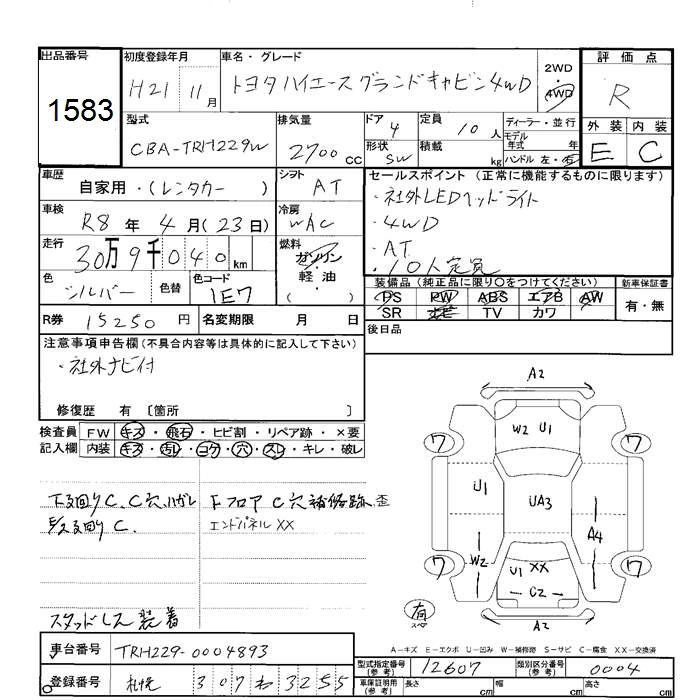 出品番号
1583
初度登録年月
H21 11月
車名・グレード
トヨタハイエースグランドキャビン4WD
2WD
・
4WD
評価点
R
外装 内装
E C
型式
CBA-TRH229W
排気量
2700cc
ドア
4
形状
SW
定員
10人
積載
kg
ディーラー・並行
モデル年式 年
ハンドル 左・右
車歴
自家用・(レンタカー)
シフト
AT
車検
R8年4月(23日)
冷房
WAC
走行
30万9千040km
燃料
ガソリン
軽・油
( )
色
シルバー
色替
色コード
1E7
R券 15250円
名変期限 月 日
セールスポイント(正常に機能するものに限ります)
・社外LEDヘッドライト
・4WD
・AT
・10人定員
装備品(純正品に限り○をつけてください)
PS PW ABS エアB AW
SR ナビ TV カワ
新車保証書
有・無
後日品
注意事項申告欄(不具合内容等は具体的に記入して下さい)
・社外ナビ付
修復歴 有〔箇所 〕
検査員 FW キズ・飛石・ヒビ割・リペア跡・×要
記入欄 内装 キズ・汚レ・コゲ・穴・スレ・キレ・破レ
下回りC、C穴、ハガレ
足回りC、
Fフロア C穴補修跡、歪
エンドパネルXX
スタッドレス装着
A2
W2 U1
ワ ワ
U1 UA3 A4
W2
ワ ワ
U1 XX
C2
有
スペア
A2
A-キズ E-エクボ U-凹み W-補修跡 S-サビ C-腐食 XX-交換済
車台番号 TRH229-0004893
登録番号 札幌 307わ3255
型式指定番号(参考) 12607
類別区分番号(参考) 0004
車庫証明用(参考) 長さ cm 幅 cm 高さ cm